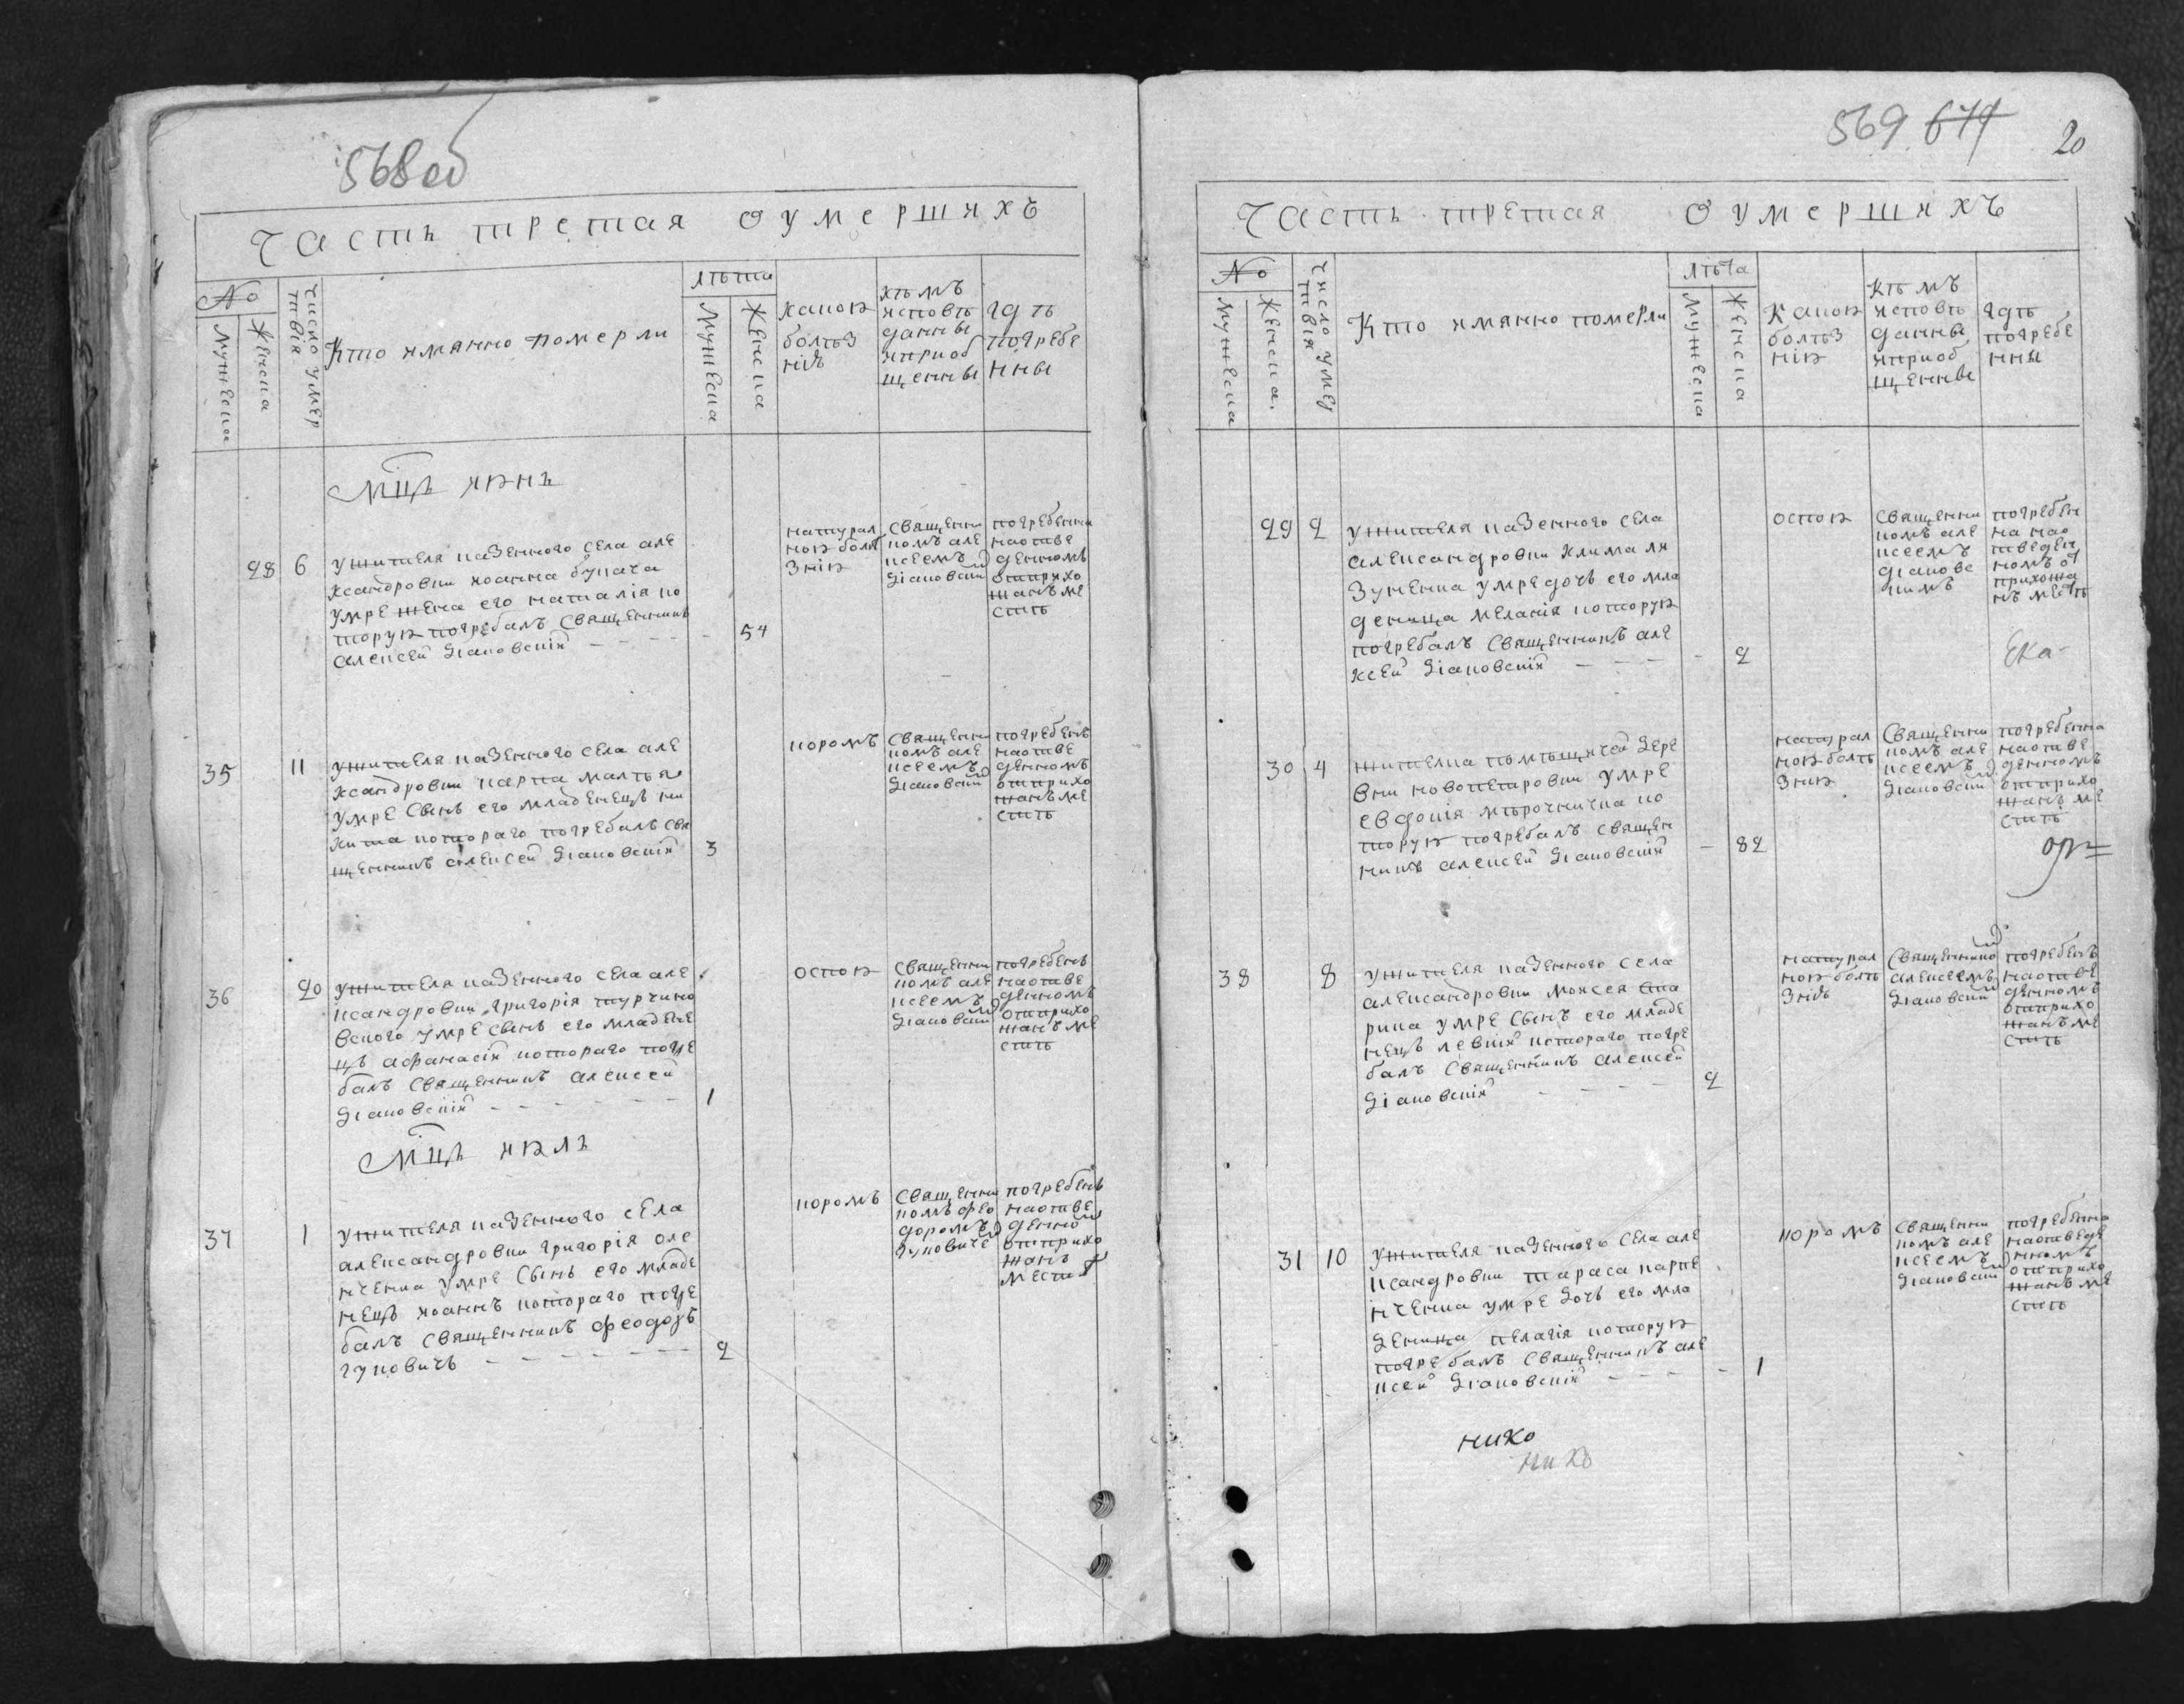 568 об
Часть третая о умершихъ
№
мужеска
женска
число умер
твія
Кто имянно померли
лѣта
мужеска
женска
какою
болѣз
нію
кѣмъ
исповѣ
данны
и приоб
щенны
гдѣ
погребе
нны
мцъ июнь
28
6
у жителя казенного села але
ксандровки иоанна
умре жена его наталія ко
торую погребалъ священникъ
алексей діаковскій
54
натурал
ною болѣ
знію
священни
комъ але
ксеемъ
діаковски
погребенна
на отве
денномъ
отприхо
жанъ ме
стѣ
35
11
у жителя казенного села але
ксандровки карпа
умре сынъ его младенецъ ни
кита которого погребалъ свя
щенникъ алексей діаковскій
3
коромъ
священни
комъ але
ксеемъ
діаковски
погребенъ
на отве
денномъ
отприхо
жанъ ме
стѣ
36
20
у жителя казенного села але
ксандровки григорія турчино
вского умре сынъ его младене
цъ афанасій которого погре
балъ священникъ алексей
діаковскій
1
оспою
священни
комъ але
ксеемъ
діаковски
погребенъ
на отве
денномъ
отприхо
жанъ ме
стѣ
мцъ июль
37
1
у жителя казенного села
александровки григорія оле
нченка умре сынъ его младе
нецъ иоаннъ которого погре
балъ священникъ феодоръ
гуковичъ
2
коромъ
священни
комъ фео
доромъ
гуковиче
погребенъ
на отве
денно
отприхо
жанъ
местѣ
569 674
20
Часть третая о умершихъ
№
мужеска
женска
число умер
твія
Кто имянно померли
лѣта
мужеска
женска
какою
болѣз
нію
кѣмъ
исповѣ
данны
и приоб
щенны
гдѣ
погребе
нны
29
2
у жителя казенного села
александровки клима ля
зуненка умре дочь его мла
деница меланія которую
погребалъ священникъ але
ксей діаковскій
2
оспою
священни
комъ але
ксеемъ
діаковс
кимъ
погребен
на на о
тведен
номъ от
прихожа
нъ местѣ
Ека-
30
4
жителка помѣщичей дере
вни новопетровки умре
евдокія мѣрочничка ко
торую погребалъ священ
никъ алексей діаковскій
82
натурал
ною болѣ
знію
священни
комъ але
ксеемъ
діаковски
погребенна
на отве
денномъ
отприхо
жанъ ме
стѣ
38
8
у жителя казенного села
александровки моисея ста
рика умре сынъ его младе
нецъ левкій которого погре
балъ священникъ алексей
діаковскій
2
натурал
ною болѣ
знію
священнико
алексеемъ
діаковски
погребенъ
на отве
денномъ
отприхо
жанъ ме
стѣ
31
10
у жителя казенного села але
ксандровки тараса карпе
нченка умре дочь его мла
деница пелагія которую
погребалъ священникъ але
ксей діаковскій
1
коромъ
священни
комъ але
ксеемъ
діаковски
погребенна
на отведе
нномъ
отприхо
жанъ ме
стѣ
нико
нико